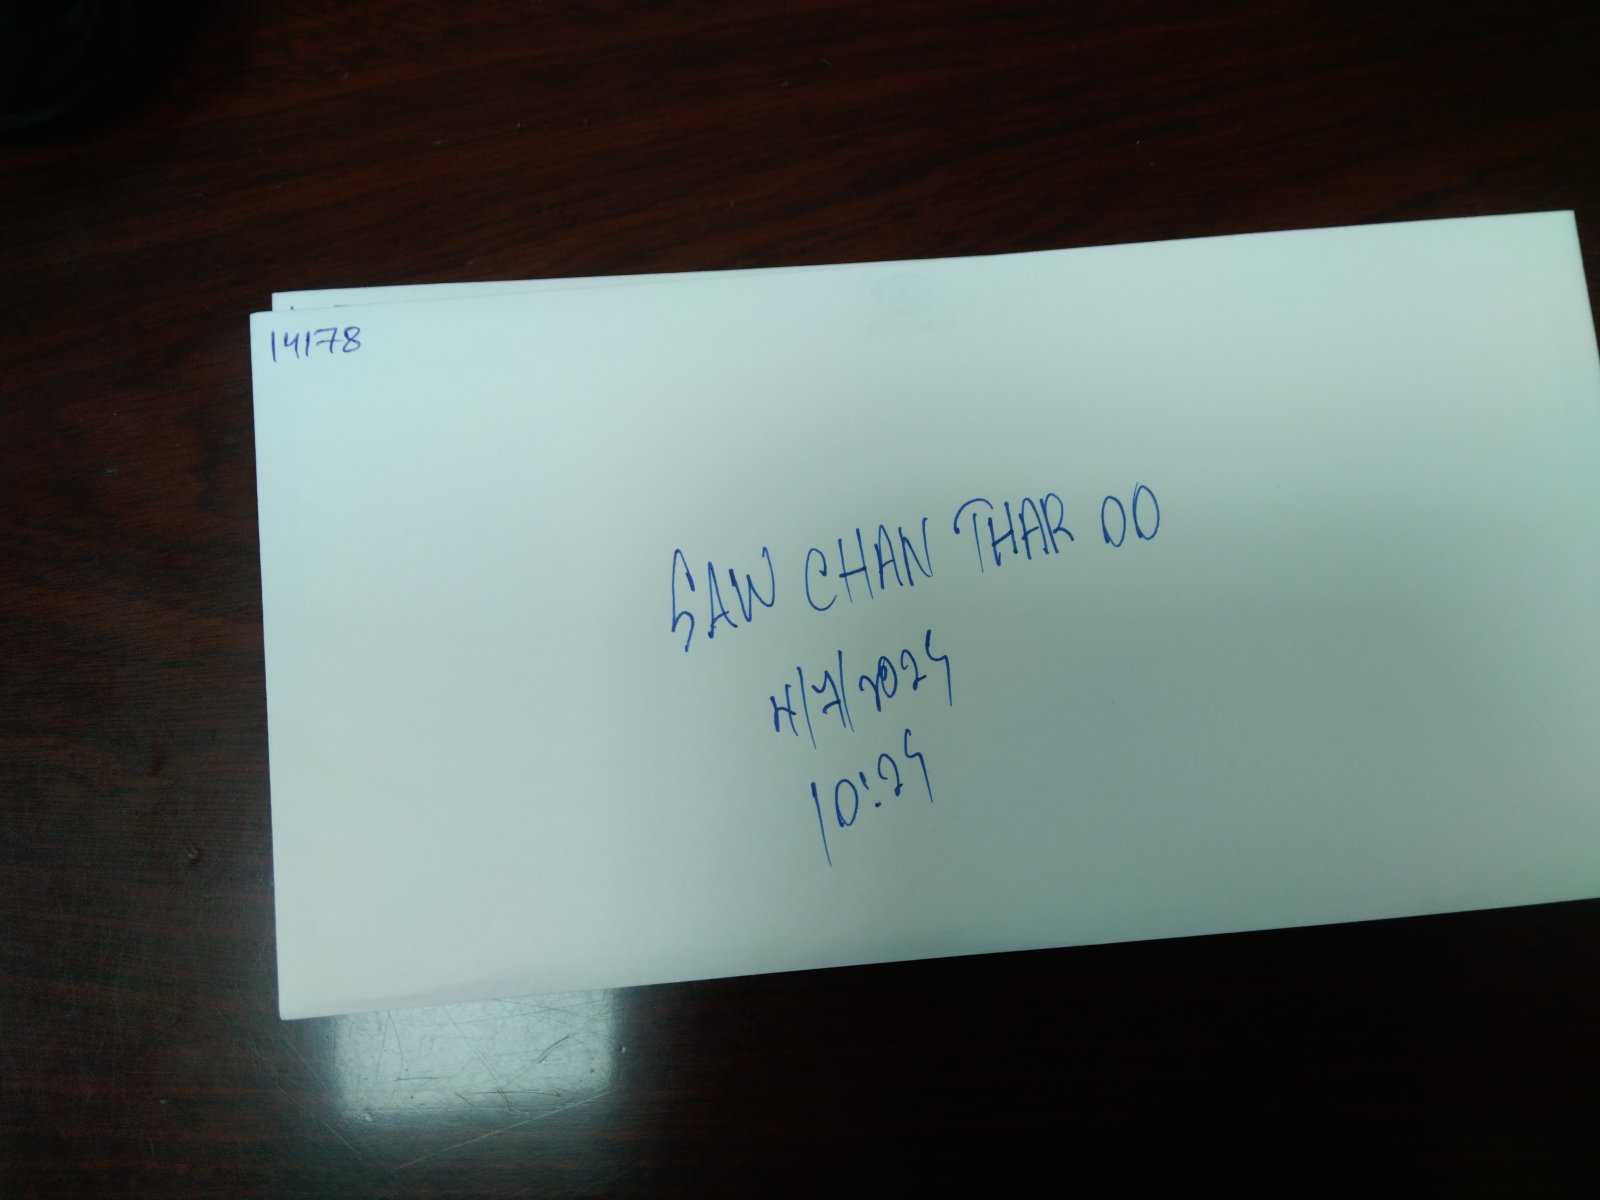 14178
SAW CHAN THAR OO
4/7/2024
10:24